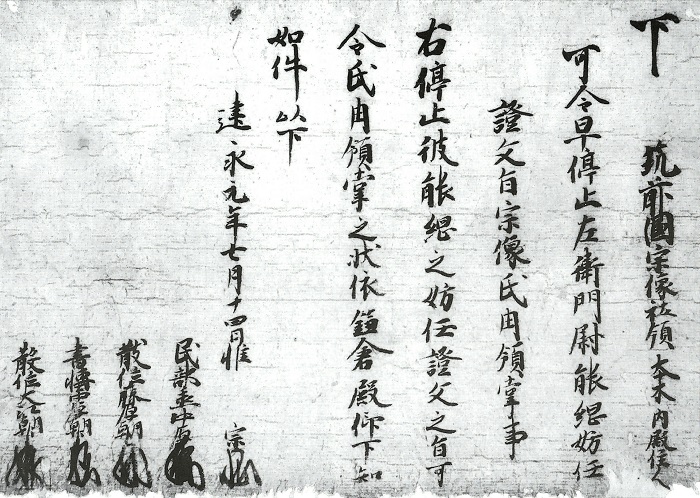 下　筑前國宗像社領本木内殿住人
可令早停止左衛門尉能綱妨任
證文旨宗像氏用領掌事
右停止彼能綱之妨任證文之旨可
令氏用領掌之状依鎌倉殿仰下知
如件以下
建永元年七月十四日惟宗
民部丞中原
散位藤原朝臣
書博士中原朝臣
散位大江朝臣